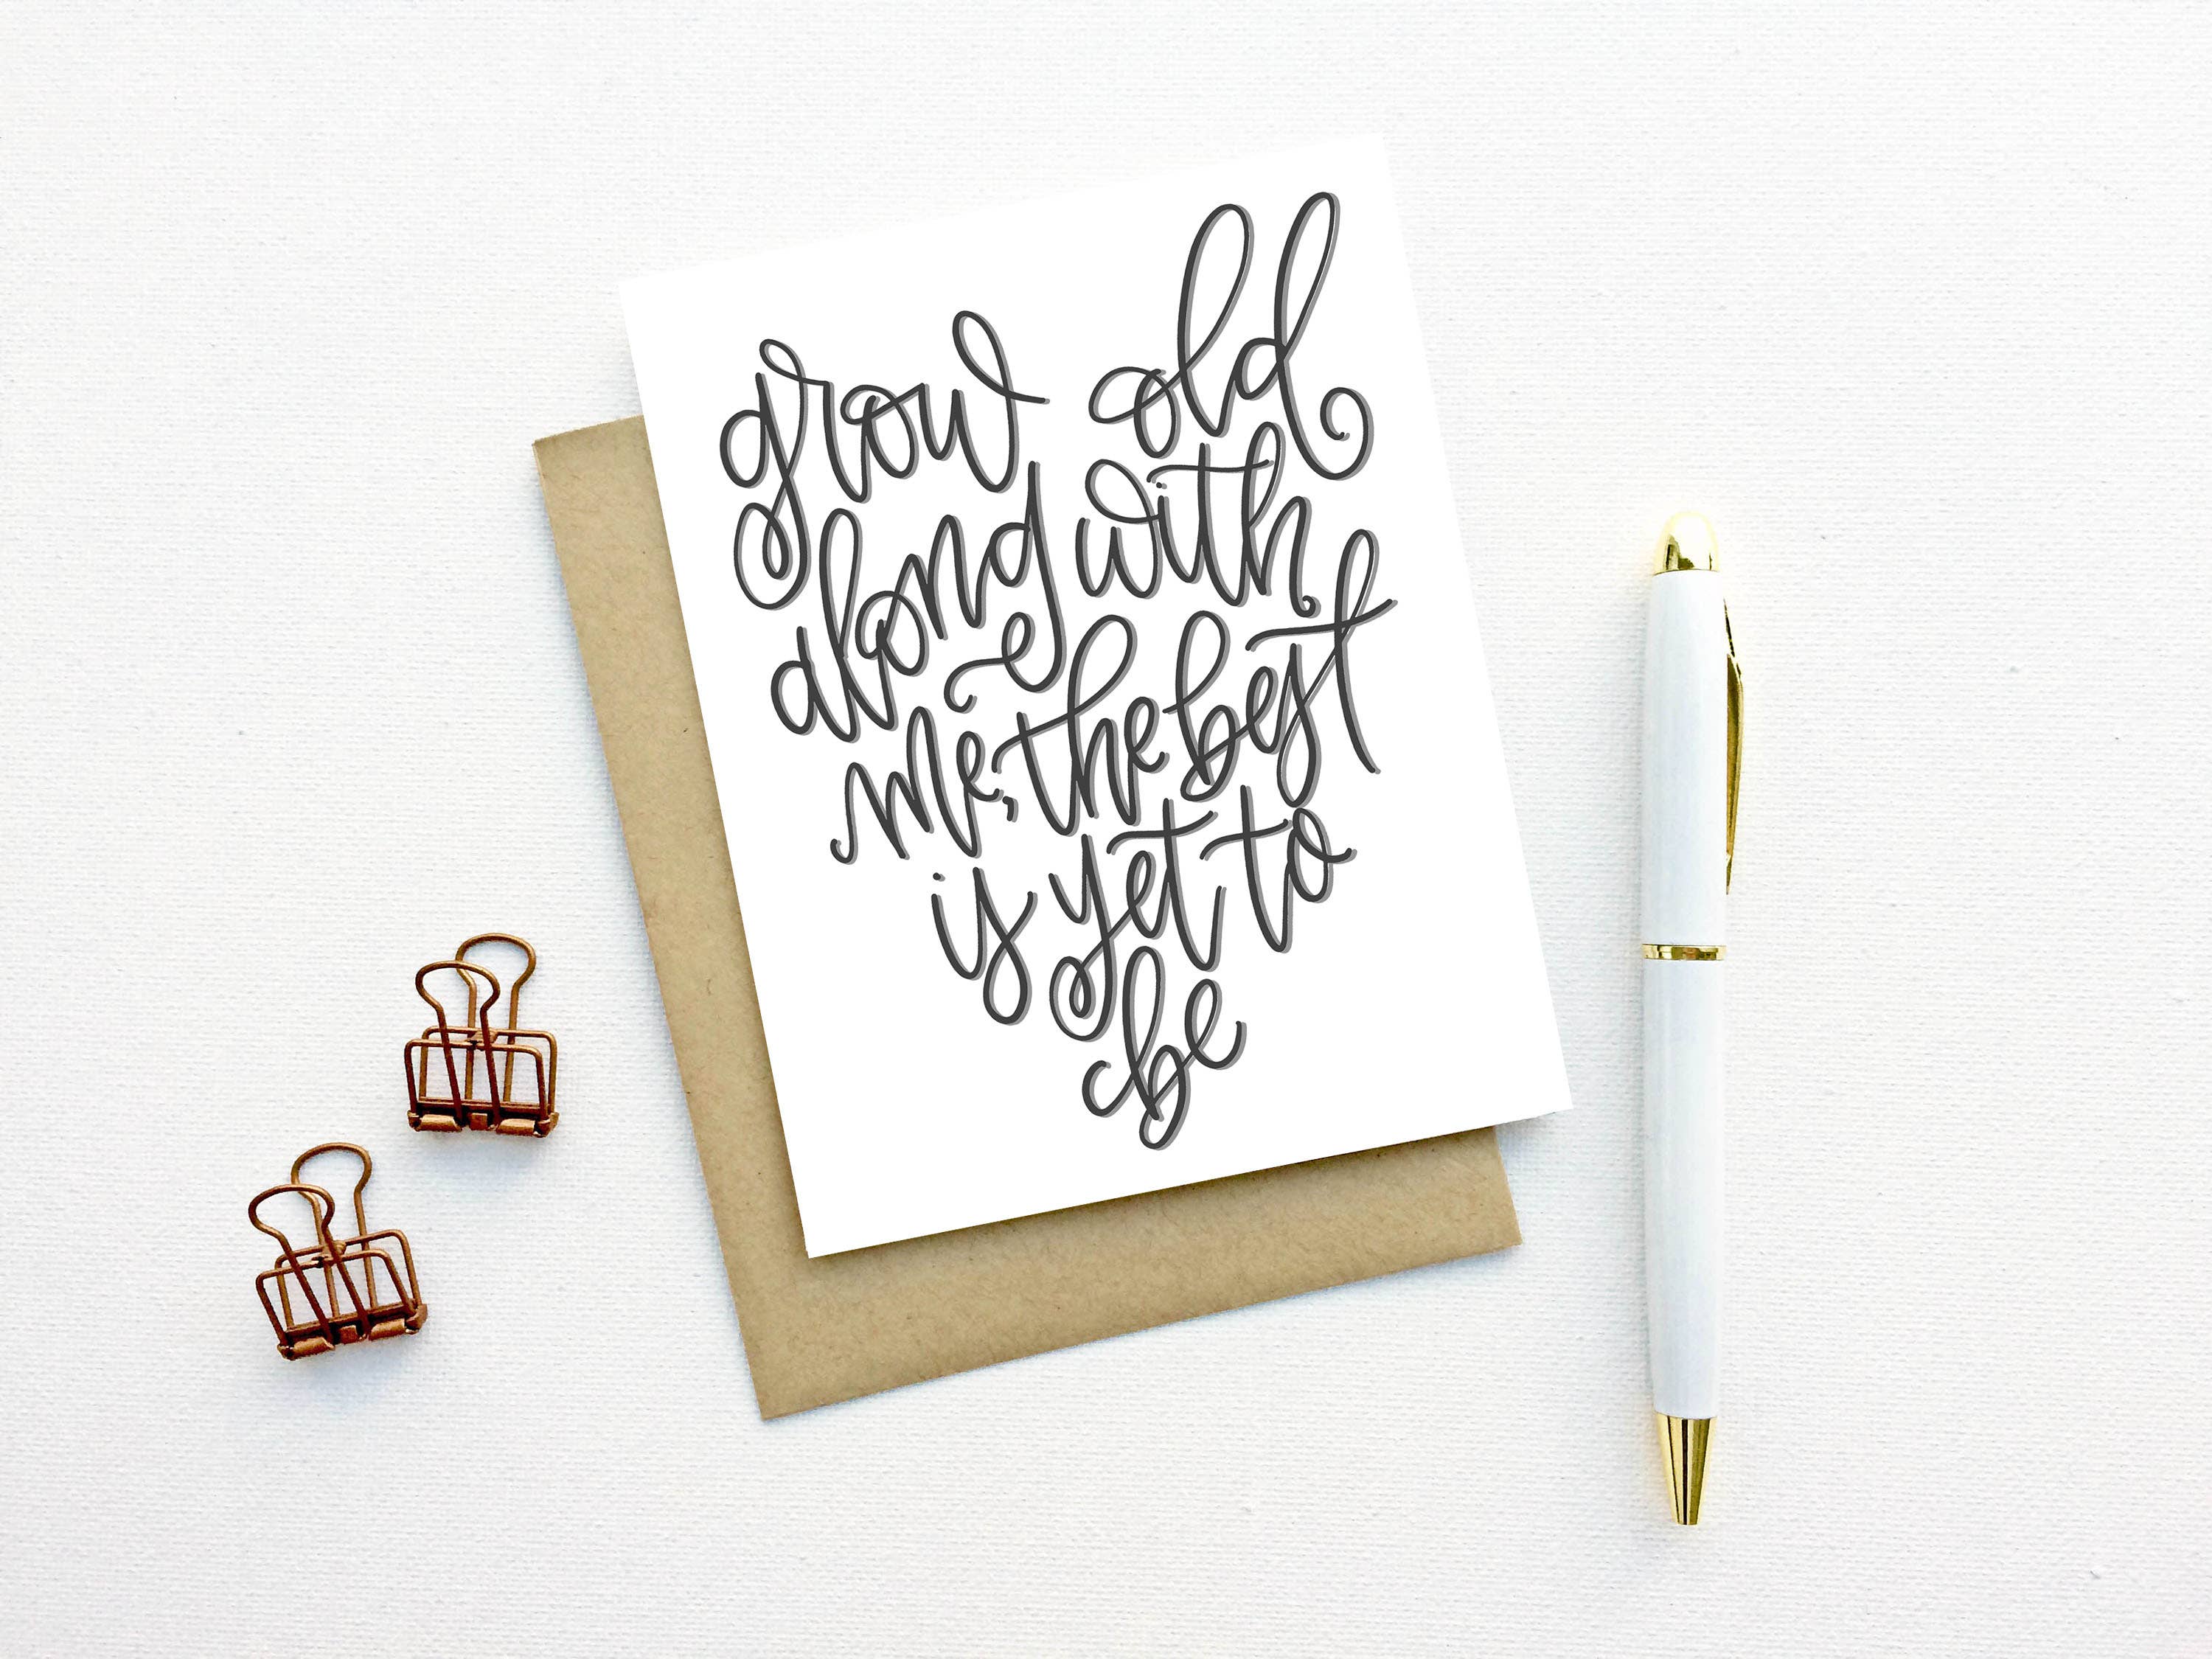 grow old
along with
me, the best
is yet to
be